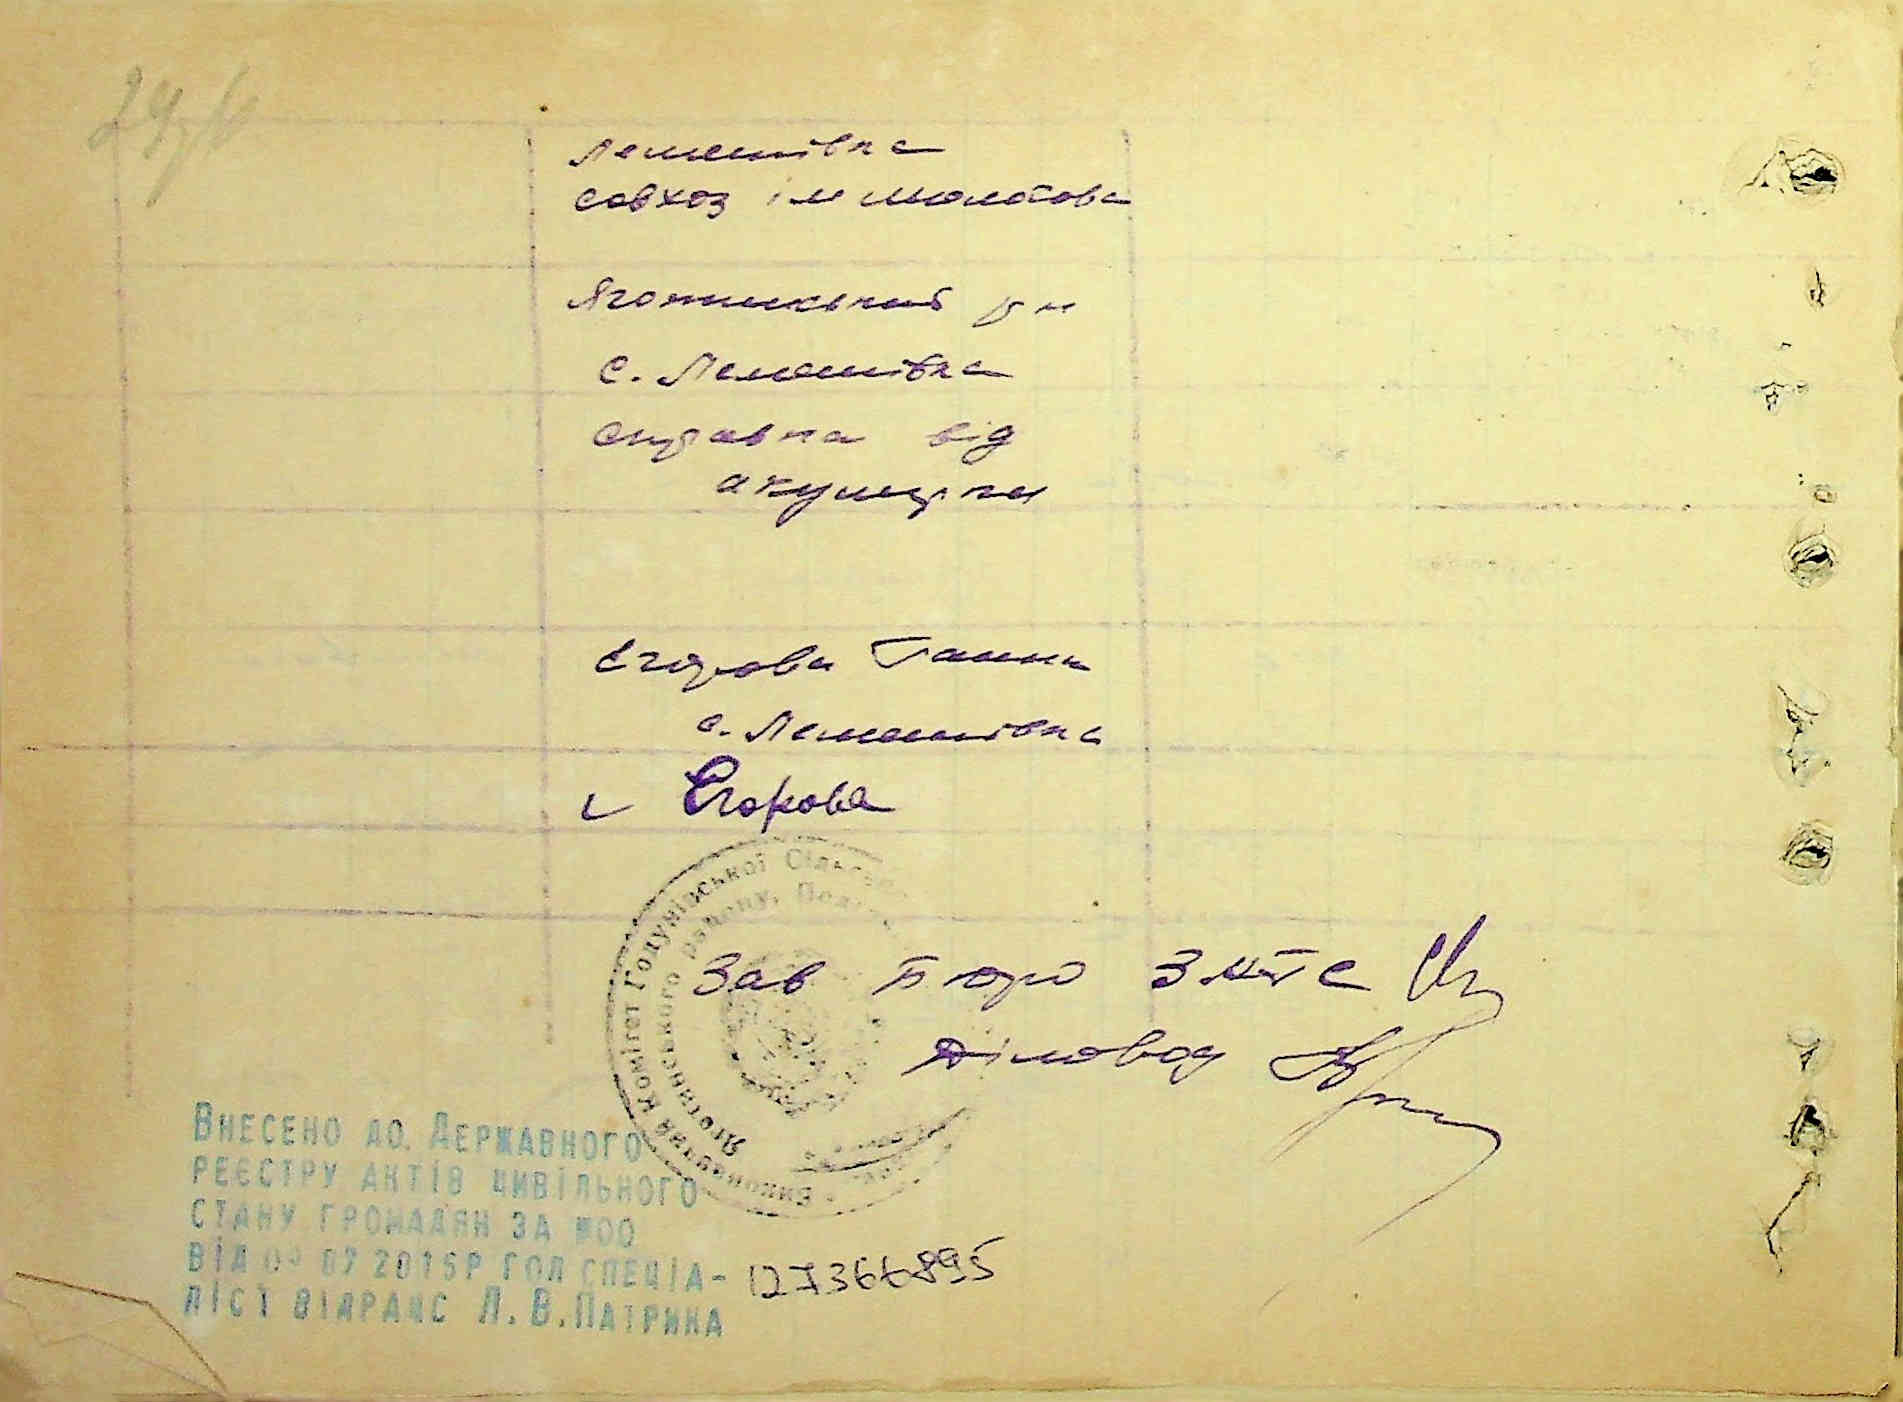 Лемешівка
совхоз ім Молотова
Яготинський р н
с. Лемешівка
справка від
акушерки
Єгорова Ганна
с. Лемешівка
Єгорова
Виконавчий Комітет Годунівської Сільської
Яготинського району,
Зав бюро ЗАГС
Діловод
Внесено до Державного
реєстру актів цивільного
стану громадян за №00
від 09 07 2015р гол спеціа-
ліст відрацс Л.В.Патрика